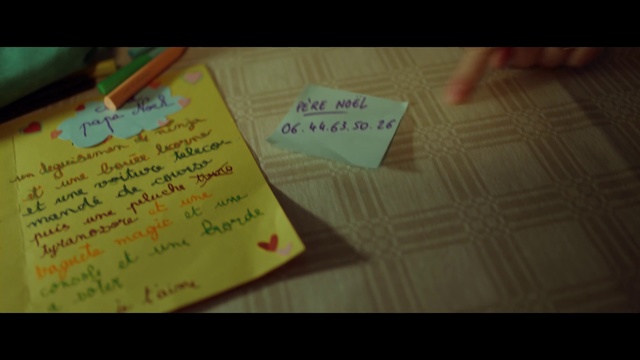 papa Noël
un deguisement de ninja
et une bouée licorne
et une voiture telecom
mandé de course
puis une peluche
tyranosore et une
baguete magic et une
console et une
a t'aime
PÈRE NOËL
06.44.63.50.26